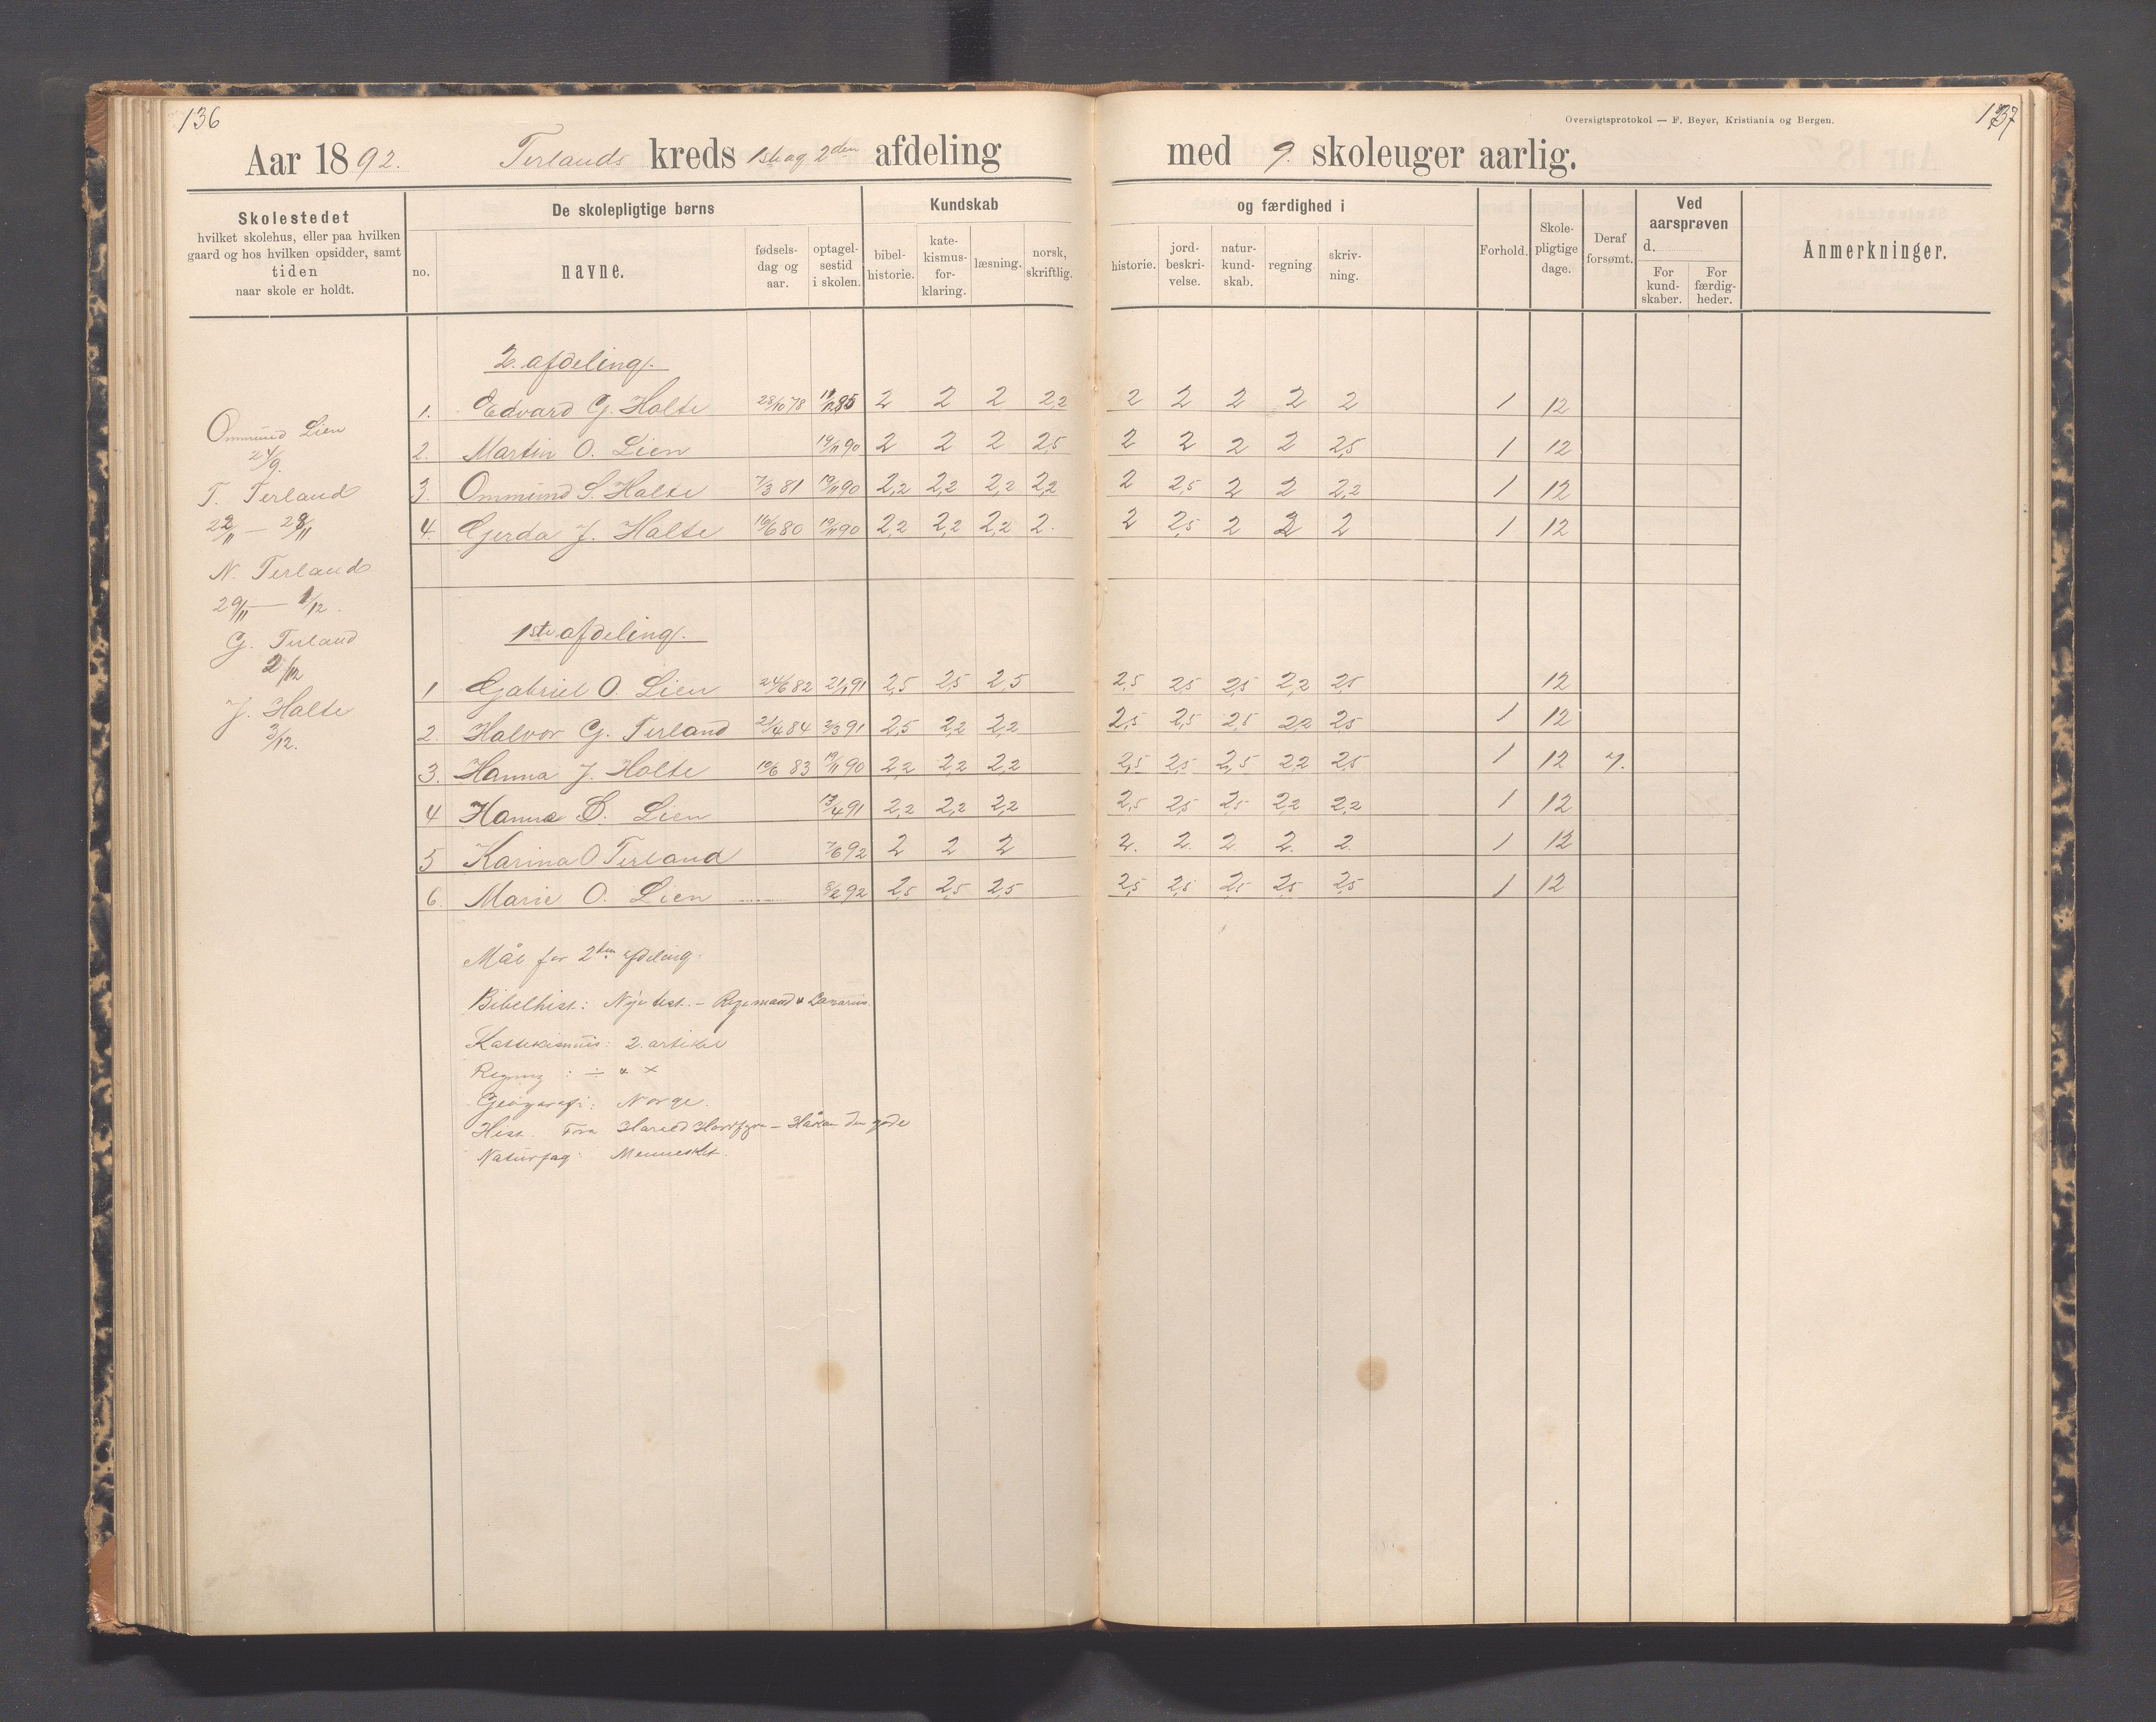 136
137
Oversigtsprotokol — F. Beyer, Kristiania og Bergen.
Aar 1892. Terlands kreds 1ste og 2den afdeling med 9. skoleuger aarlig.
Skolestedet
hvilket skolehus, eller paa hvilken
gaard og hos hvilken opsidder, samt
tiden
naar skole er holdt.
De skolepligtige børns
no.
navne.
fødsels-
dag og
aar.
optagel-
sestid
i skolen.
Kundskab
bibel-
historie.
kate-
kismus-
for-
klaring.
læsning.
norsk,
skriftlig.
og færdighed i
historie.
jord-
beskri-
velse.
natur-
kund-
skab.
regning
skriv-
ning.
Forhold.
Skole-
pligtige
dage.
Deraf
forsømt.
Ved
aarsprøven
d.
For
kund-
skaber.
For
færdig-
heder.
Anmerkninger.
Ommund Lien
24/9.
T. Terland
22/11 — 28/11
N. Terland
29/11 — 1/12.
G. Terland
2/12
J. Halte
3/12.
2. afdeling.
1. Edvard G. Halte 28/10 78 2 2 2 2,2 2 2 2 2 2 1 12
2. Martin O. Lien 19/11 90 2 2 2 2,5 2 2 2 2 2,5 1 12
3. Ommund S. Halte 7/3 81 19/11 90 2,2 2,2 2,2 2,2 2 2,5 2 2 2,2 1 12
4. Gerda J. Halte 16/6 80 19/11 90 2,2 2,2 2,2 2. 2 2,5 2 2 2 1 12
1ste afdeling.
1 Gabriel O. Lien 24/6 82 2/1 91 2,5 2,5 2,5 2,5 2,5 2,5 2,2 2,5 12
2. Halvor G. Terland 21/4 84 2/3 91 2,5 2,2 2,2 2,5 2,5 2,5 2,2 2,5 1 12
3. Hanna J. Holte 10/6 83 19/11 90 2,2 2,2 2,2 2,5 2,5 2,5 2,2 2,5 1 12 7.
4 Hanna Lien 13/4 91 2,2 2,2 2,2 2,5 2,5 2,5 2,2 2,2 1 12
5 Karina O Terland 7/6 92 2 2 2 2. 2. 2. 2. 2. 1 12
6. Marie O. Lien 8/2 92 2,5 2,5 2,5 2,5 2,5 2,5 2,5 2,5 1 12
Mål for 2den afdeling.
Bibelhist: Nye test. – Rigemand & Lazarus.
Kattekismus: 2. artikel
Regning : ÷ & ×
Geografi: Norge.
Hist. Fra Harald Haarfagre – Håkon den gode
Naturfag: Mennesket.